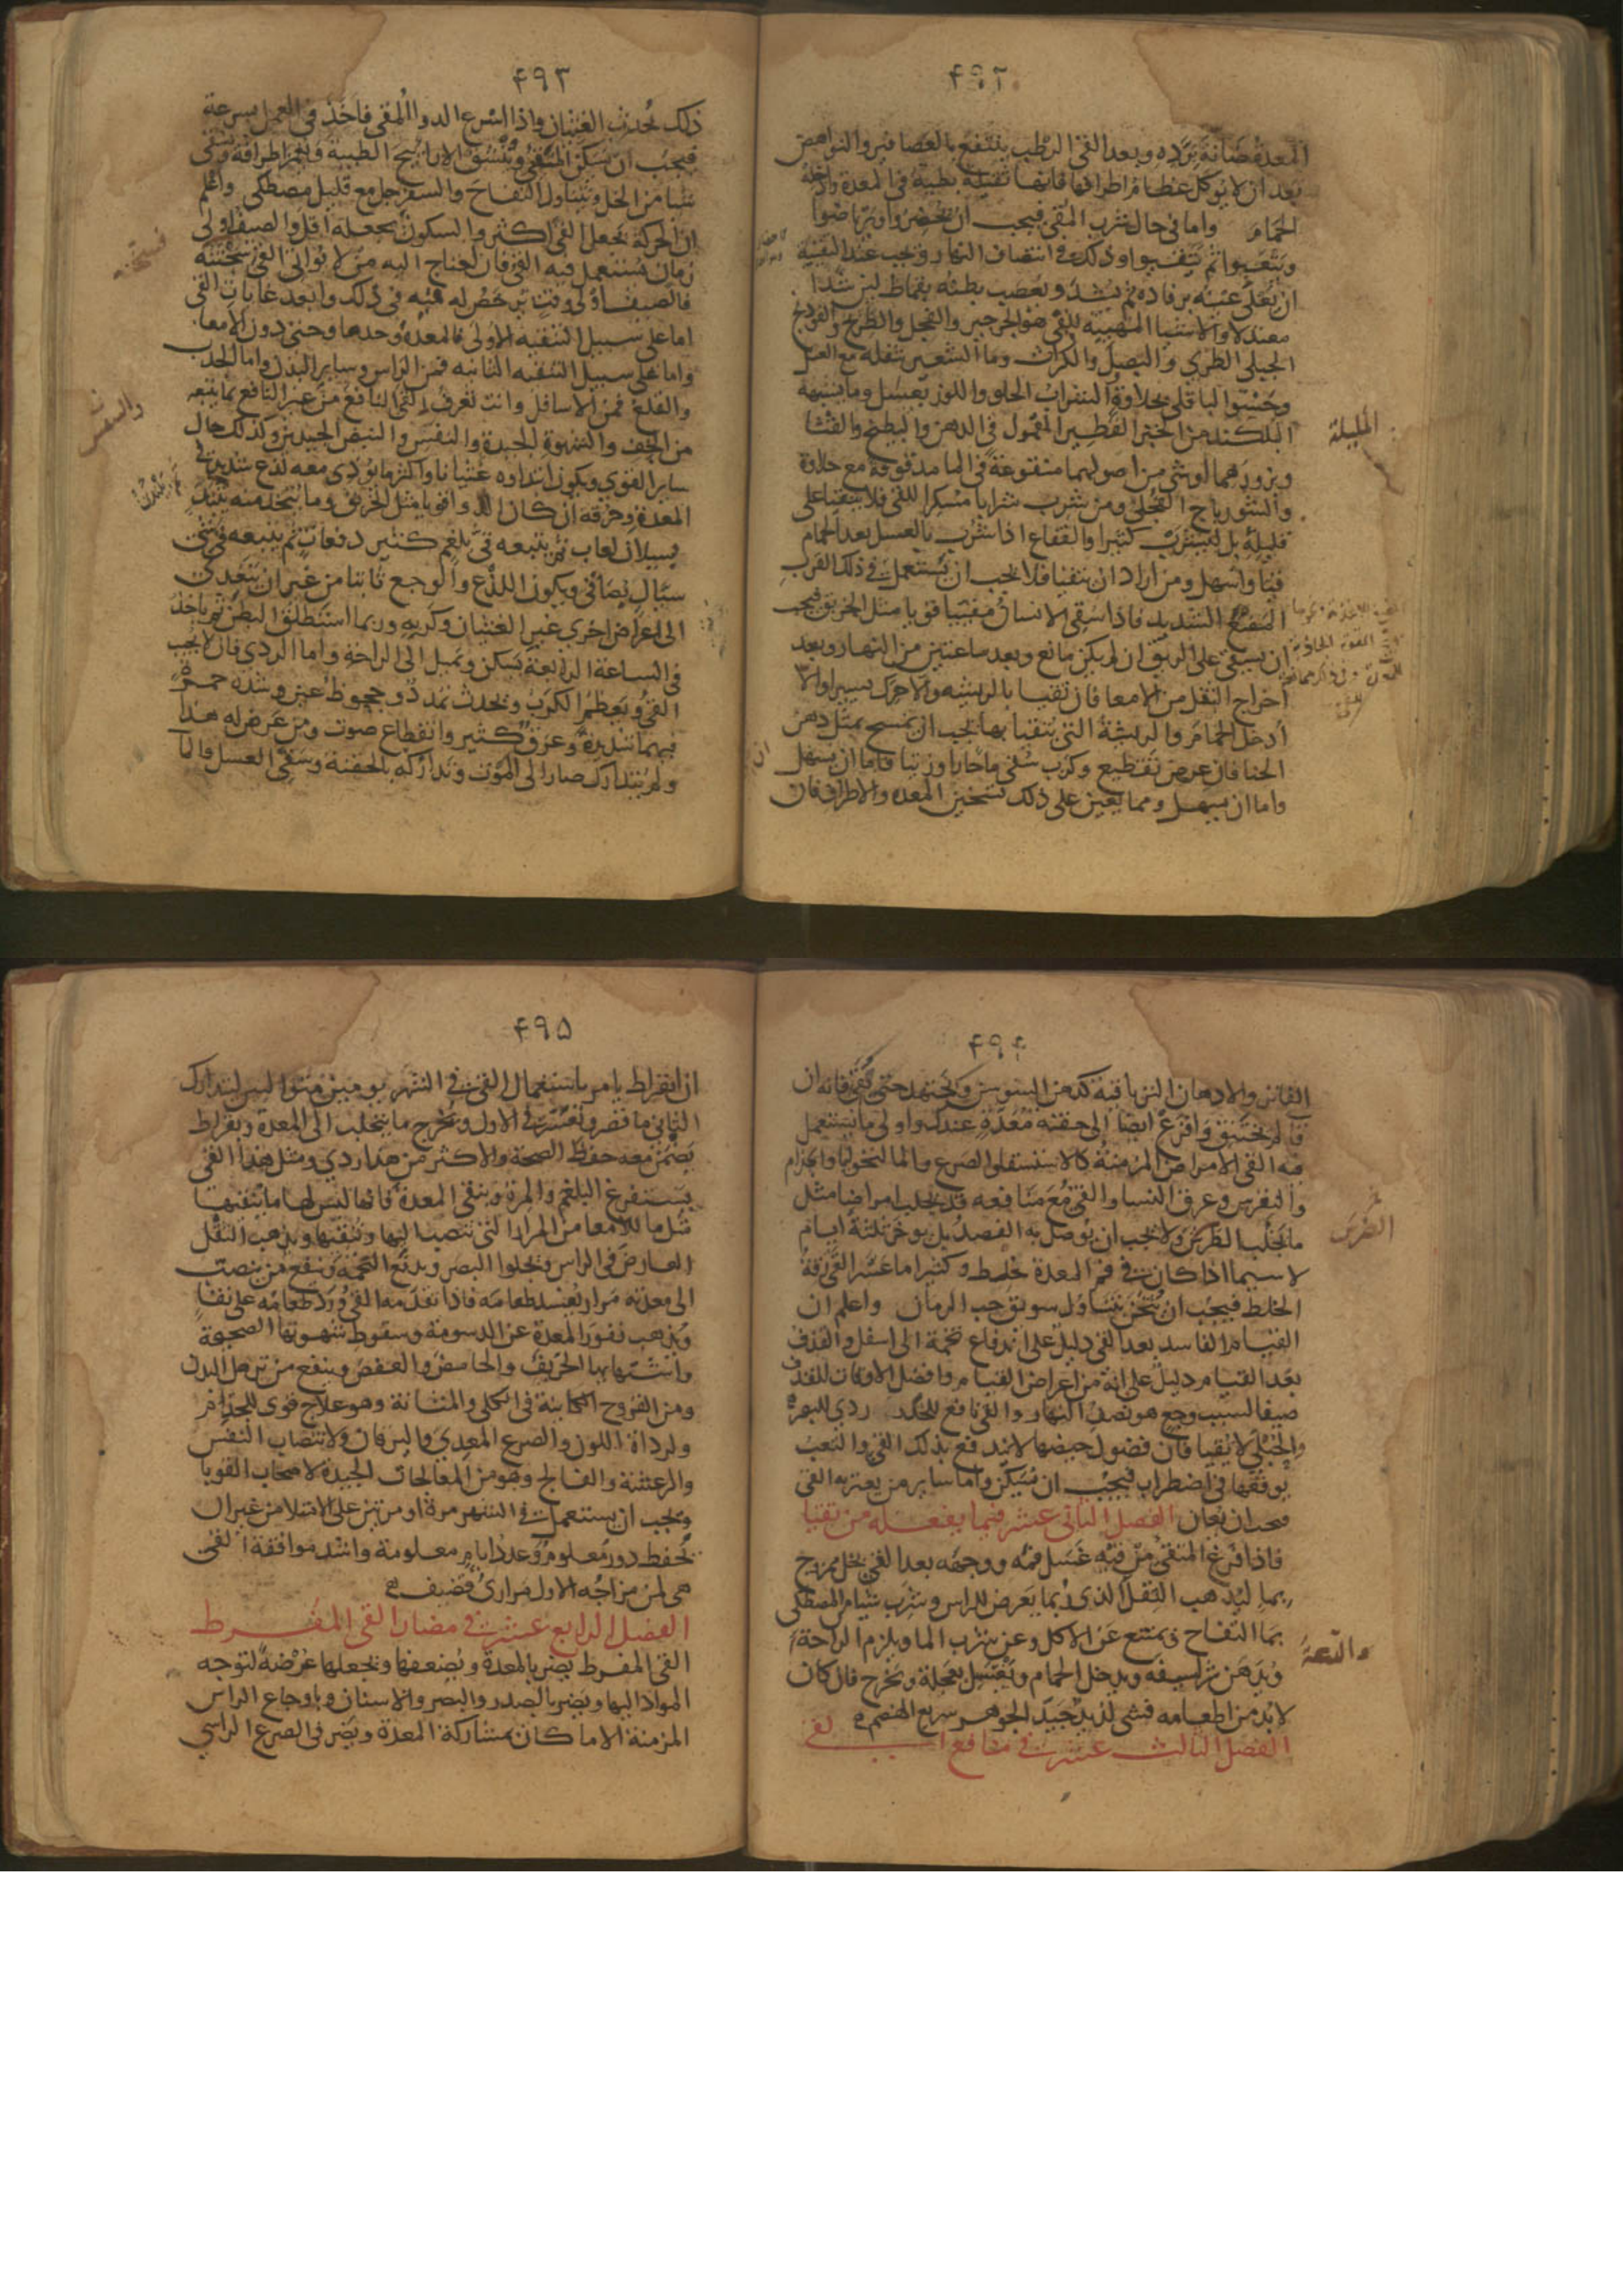 ۴۹۲
المعدة صانة برده وبعد القي الرطب ينتفع بالعصافير والنواهض
بعد ان لا يوكل عظام اطرافها فانها ثقيلة بطية في المعدة وادخله
الحمام واما في حال شرب المقي فيجب ان يحضروا ويرتاضوا
ويتعبوا ثم يتقيوا وذلك في انتصاف النهار ويجب عند التقية
ان يغطي عينه برفاده ثم يشد ويعصب بطنه بقماط لين شدا
معتدلا والاشيا المهيية للقي هو الجرجير والفجل والطرنج والفودنج
الجبلي الطري والبصل والكراث وما الشعير بثفله مع العسل
وحسو الباقلي بحلاوة والشراب الحلو واللوز بعسل وما يشبهه
البلكند من الخبز الفطير المعمول في الدهن والبطيخ والقثا
وبزورهما او شي من اصولهما منقوعة في الما مدقوقة مع حلاوة
والشورباج الفجلي ومن شرب شرابا مسكرا للقي فلا يتقيا على
قليله بل ليشرب كثيرا والفقاع اذا شرب بالعسل بعد الحمام
قيا واسهل ومن اراد ان يتقيا فلا يجب ان يستعمل في ذلك القرب
المضغ الشديد فاذا سقي الانسان مقييا قويا مثل الخربق فيجب
ان يسقي على الريق ان لم يكن مانع وبعد ساعتين من النهار وبعد
اخراج الثفل من الامعا فان تقيا بالريشه والا حرك يسيرا والا
ادخل الحمام والريشة التي يتقيا بها يجب ان تمسح بمثل دهن
الحنا فان عرض تقطيع وكرب سقي ما حارا وزيتا فاما ان يسهل
واما ان يسهل ومما يعين على ذلك تسخين المعده والاطراف فان
المليلة
۴۹۳
ذلك يحدث الغثيان واذا اسرع الدوا المقي فاخذ في العمل بسرعة
فيجب ان يسكن المتقي ويتنشق الاراييح الطيبة ويغمز اطرافه ويسقي
شيا من الخل ويتناول التفاح والسفرجل مع قليل مصطكي واعلم
ان الحركة تجعل القي اكثر والسكون يجعله اقل والصيف اولى
زمان يستعمل فيه القي فان احتاج اليه من لا يواتي القي سحنته
فالصيف اولى وقت يرخص له فيه في ذلك وابعد غايات القي
اما على سبيل التنقيه الاولى فالمعدة وحدها وحتى دون الامعا
واما على سبيل التنقيه الثانيه فمن الراس وساير البدن واما الجذب
والقلع فمن الاسافل وانت تعرف القي النافع من غير النافع بما يتبعه
من الخف والشهوة الجيدة والنفس والنبض الجيدين وكذلك حال
ساير القوي ويكون ابتداوه غثيانا واكثر ما يوذي معه لذع شديد في
المعدة وحرقه ان كان الدوا قويا مثل الخربق وما يتخذ منه يبتدي
بسيلان لعاب ثم يتبعه قي بلغم كثير دفعات ثم يتبعه قي شي
سيال صافي ويكون اللذع والوجع ثابتا من غير ان يتعدى
الى اعراض اخري غير الغثيان وكربه وربما استطلق البطن ثم ياخذ
في الساعة الرابعة يسكن وتميل الى الراحة واما الردي فان لا يجيب
القي ويعظم الكرب ويحدث تمدد وجحوظ عين وشدة حمرة
فيهما شديدة وعرق كثير وانقطاع صوت ومن عرض له هذا
ولم يتدارك صار الى الموت وتداركه بالحقنة وسقي العسل والما
سحنته
۴۹۴
الفاتر والادهان الترياقية كدهن السوسن ويجتهد حتى يقي فانه ان
قا لم يختنق وافزع ايضا الى حقنة معدة عندك واولى ما يستعمل
فيه القي الامراض المزمنة كالاستسقا والصرع والمالنخوليا والجذام
والنقرس وعرق النسا والقي مع منافعه قد يجلب امراضا مثل
ما يجلب الطرش ولا يجب ان يوصل به الفصد بل يوخر ثلثة ايام
لا سيما اذا كان في فم المعدة خلط وكثيرا ما عسر القي رقة
الخلط فيجب ان يثخن بتناول سويق حب الرمان واعلم ان
القيام الفاسد بعد القي دليل على اندفاع تخمة الى اسفل والقذف
بعد القيام دليل على انه من اعراض القيام وافضل الاوقات للقذف
صيفا لسبب وجع هو نصف النهار والقي نافع للجسد ردي للبصر
والحبلى لا تقيا فان فضول حيضها لا تندفع بذلك القي والتعب
يوقعها في اضطراب فيجب ان تسكن واما ساير من يعتريه القي
فيجب ان يعان الفصل الثاني عشر فيما يفعله من تقيا
فاذا فرغ المتقي من قيه غسل فمه ووجهه بعد القي بخل ممزوج
بما ليذهب الثقل الذي ربما يعرض للراس وشرب شيا من المصطكي
بما التفاح ويمتنع عن الاكل وعن شرب الما ويلزم الراحة
ويدهن شراسيفه ويدخل الحمام ويغتسل بعجلة ويخرج فان كان
لابد من اطعامه فشي لذيذ جيد الجوهر سريع الهضم
الفصل الثالث عشر في منافع القي
الضرس
والدعة
۴۹۵
ان ابقراط يامر باستعمال القي في الشهر يومين متواليين ليتدارك
الثاني ما قصر وتعسر في الاول ويخرج ما يتحلب الى المعدة وبقراط
يضمن معه حفظ الصحة والاكثر من هذا ردي ومثل هذا القي
يستفرغ البلغم والمرة وينقي المعدة فانها ليس لها ما ينقيها
مثل ما للامعا من المرار التي تنصب اليها وتنقيها ويذهب الثقل
العارض في الراس ويجلوا البصر ويدفع التخمة وينفع من ينصب
الى معدته مرار يفسد طعامه فاذا تقدمه القي ورد طعامه على نقا
ويذهب نفور المعدة عن الدسومة وسقوط شهوتها الصحيحة
واشتهايها الحريف والحامض والعفص وينفع من ترهل البدن
ومن القروح الكاينة في الكلى والمثانة وهو علاج قوي للجذام
ولرداة اللون والصرع المعدي واليرقان ولانتصاب النفس
والرعشة والفالج وهو من المعالجات الجيدة لاصحاب القوبا
ويجب ان يستعمل في الشهر مرة او مرتين على الامتلا من غير ان
يحفظ دور معلوم وعدد ايام معلومة واشد موافقة القي
هي لمن مزاجه الاول مراري قضيف
الفصل الرابع عشر في مضار القي المفرط
القي المفرط يضر بالمعدة ويضعفها ويجعلها عرضة لتوجه
المواد اليها ويضر بالصدر والبصر والاسنان وباوجاع الراس
المزمنة الا ما كان بمشاركة المعدة ويضر في الصرع الراسي